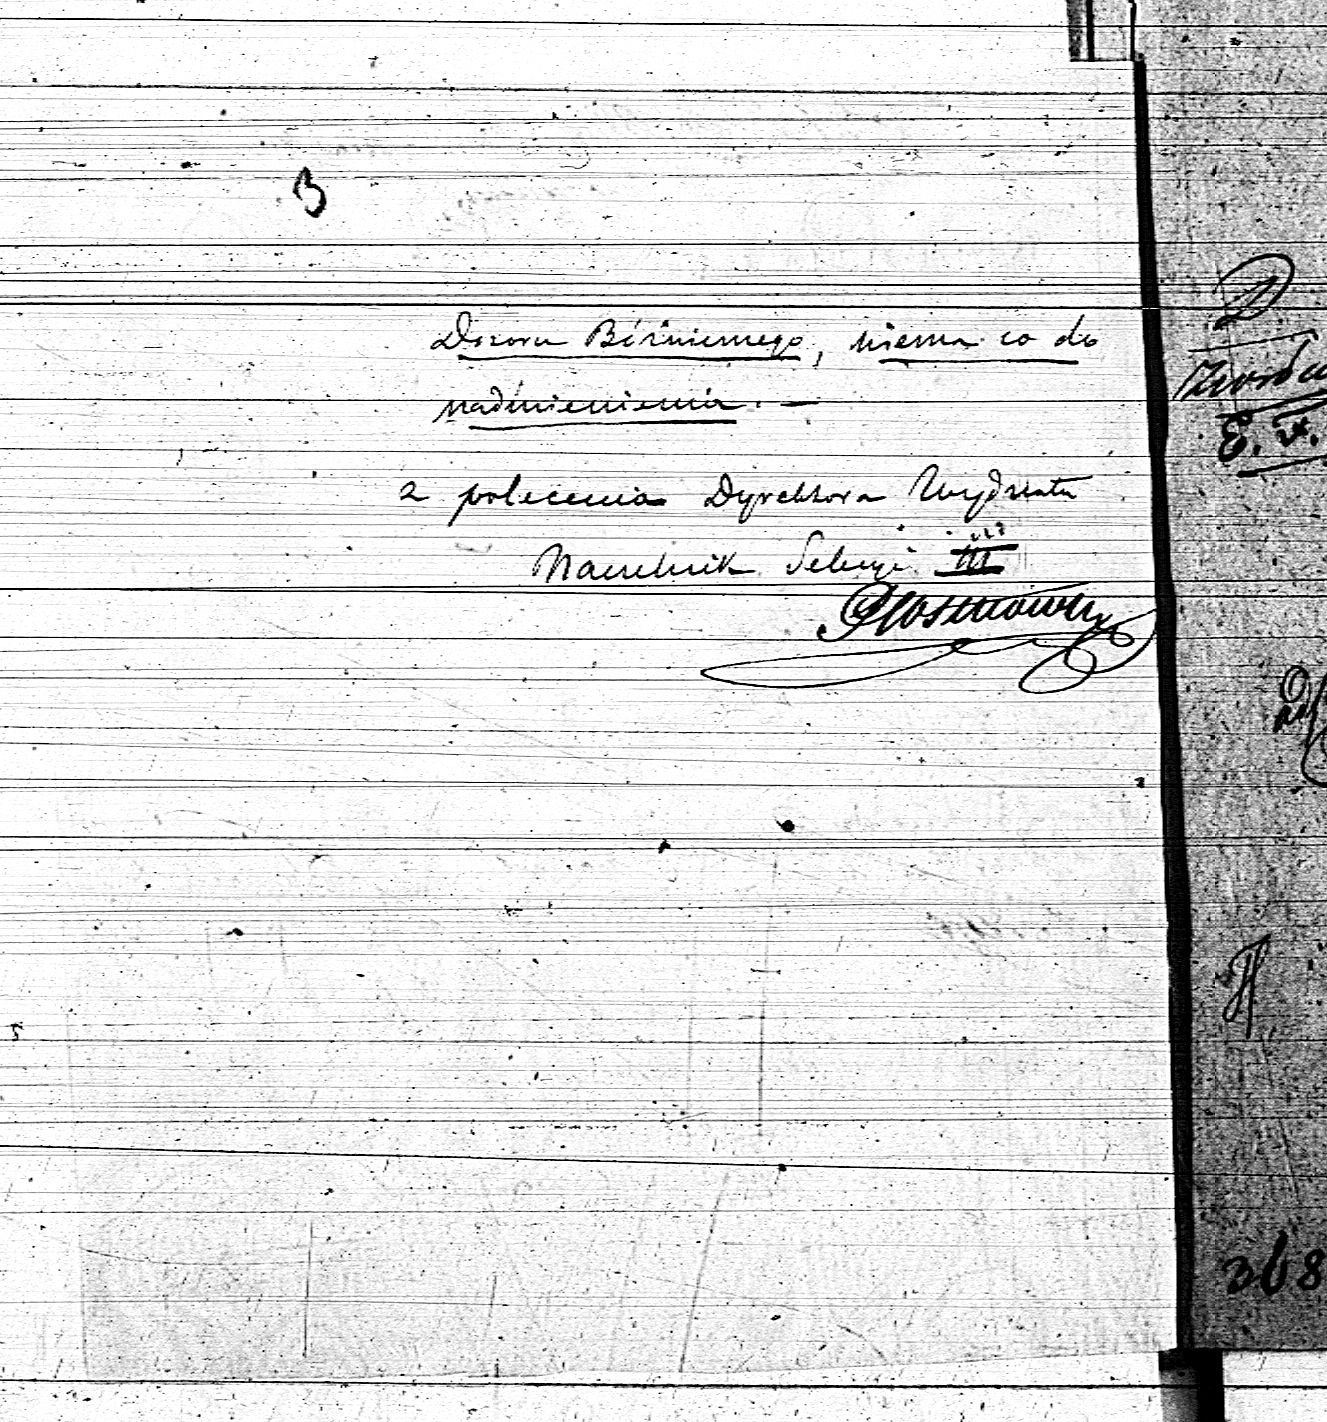 B
Dozoru Bóżniczego, niema co do
nadmienienia. —
z polecenia Dyrektora Wydziału
Naczelnik Sekcyi III
D
E. W.
368